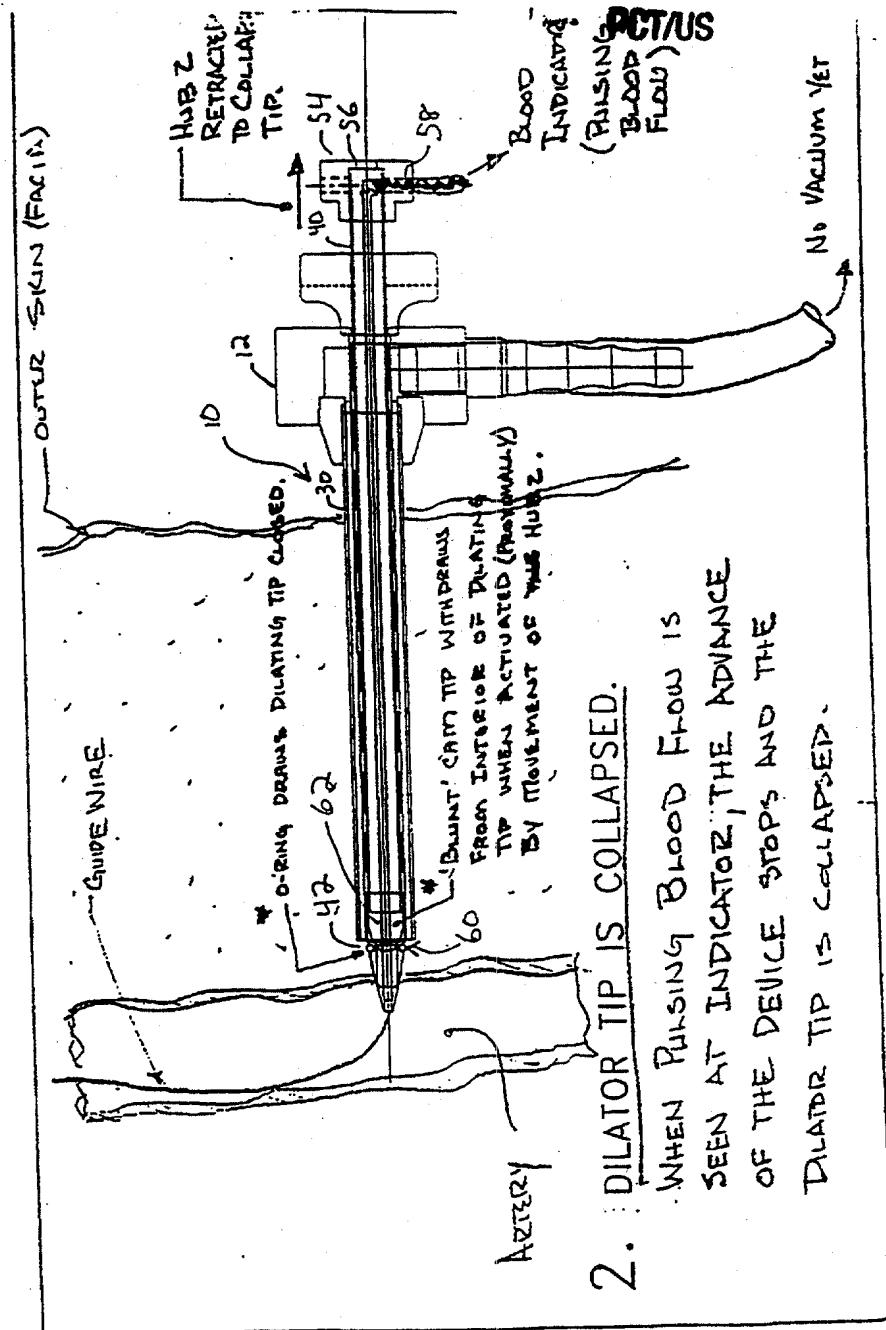 PCT/US
OUTER SKIN (FACIA)
HUB 2
RETRACTED
TO COLLAPSE
TIP.
54
56
58
40
12
10
30
BLOOD
INDICATOR
(PULSING
BLOOD
FLOW)
NO VACUUM YET
GUIDE WIRE
* O-RING DRAWS DILATING TIP CLOSED.
62
42
60
* 'BLUNT' CAM TIP WITHDRAWS
FROM INTERIOR OF DILATING
TIP WHEN ACTIVATED (PROXIMALLY)
BY MOVEMENT OF HUB 2.
ARTERY
2. DILATOR TIP IS COLLAPSED.
WHEN PULSING BLOOD FLOW IS
SEEN AT INDICATOR, THE ADVANCE
OF THE DEVICE STOPS AND THE
DILATOR TIP IS COLLAPSED.